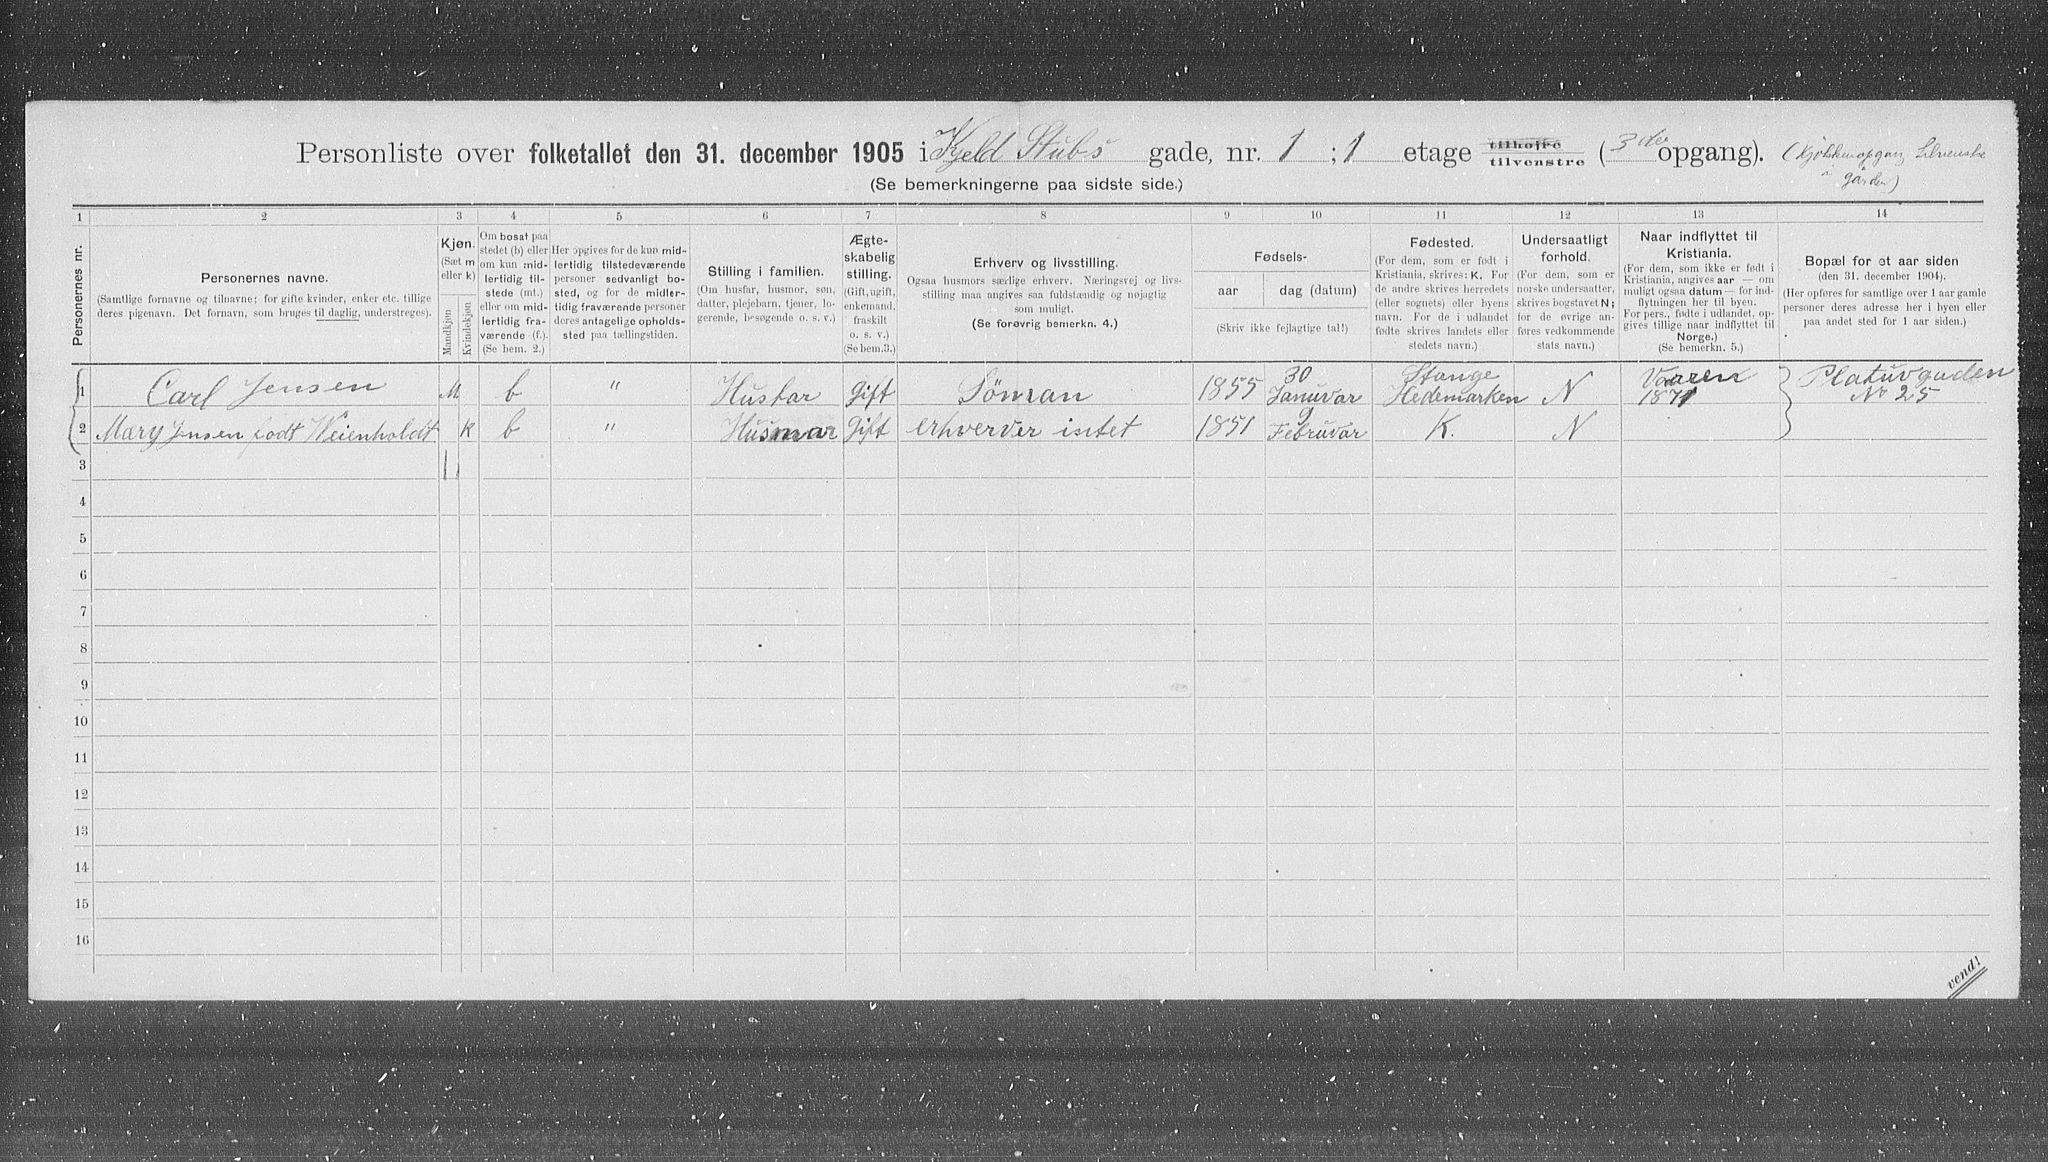 Personliste over folketallet den 31. december 1905 i Kjeld Stubs gade, nr. 1 ; 1 etage tilhøire tilvenstre (3die opgang). (Kjøkkenopgang tilvenstre
i gården)
(Se bemerkningerne paa sidste side.)
1 2 3 4 5 6 7 8 9 10 11 12 13 14
Personernes nr.
Personernes navne.
(Samtlige fornavne og tilnavne; for gifte kvinder, enker etc. tillige
deres pigenavn. Det fornavn, som bruges til daglig, understreges).
Kjøn.
(Sæt m
eller k)
Mandkjøn
Kvindekjøn
Om bosat paa
stedet (b) eller
om kun mid-
lertidig til-
stede (mt.)
eller om mid-
lertidig fra-
værende (f.).
(Se bem. 2.)
Her opgives for de kun mid-
lertidig tilstedeværende
personer sedvanlig bo-
sted, og for de midler-
tidig fraværende personer
deres antagelige opholds-
sted paa tællingstiden.
Stilling i familien.
(Om husfar, husmor, søn,
datter, plejebarn, tjener, lo-
gerende, besøgende o. s. v.)
Ægte-
skabelig
stilling.
(Gift, ugift,
enkemand,
fraskilt
o. s. v.)
(Se bem. 3.)
Erhverv og livsstilling.
Ogsaa husmors særlige erhverv. Næringsvej og livs-
stilling maa angives saa fuldstændig og nøjagtig
som muligt.
(Se forøvrig bemerkn. 4.)
Fødsels-
aar
dag (datum)
(Skriv ikke fejlagtige tal!)
Fødested.
(For dem, som er født i
Kristiania, skrives: K. For
de andre skrives herredets
(eller sognets) eller byens
navn. For de i udlandet
fødte skrives landets eller
stedets navn.)
Undersaatligt
forhold.
(For dem, som er
norske undersaatter,
skrives bogstavet N;
for de øvrige an-
føres vedkommende
stats navn.)
Naar indflyttet til
Kristiania.
(For dem, som ikke er født i
Kristiania, angives aar — om
muligt ogsaa datum — for ind-
flytningen her til byen.
For pers., fødte i udlandet, op-
gives tillige naar indflyttet til
Norge.)
(Se bemerkn. 5.)
Bopæl for et aar siden
(den 31. december 1904).
(Her opføres for samtlige over 1 aar gamle
personer deres adresse her i byen eller
paa andet sted for 1 aar siden.)
1 Carl Jensen M b " Husfar Gift Söman 1855 30 Januvar Stange Hedemarken N Vaaren 1871 Platuvgaden No 25
2 Mary Jensen født Weienholdt K b " Husmor Gift erhverver intet 1851 9 Februvar K. N
3
4
5
6
7
8
9
10
11
12
13
14
15
16
vend!